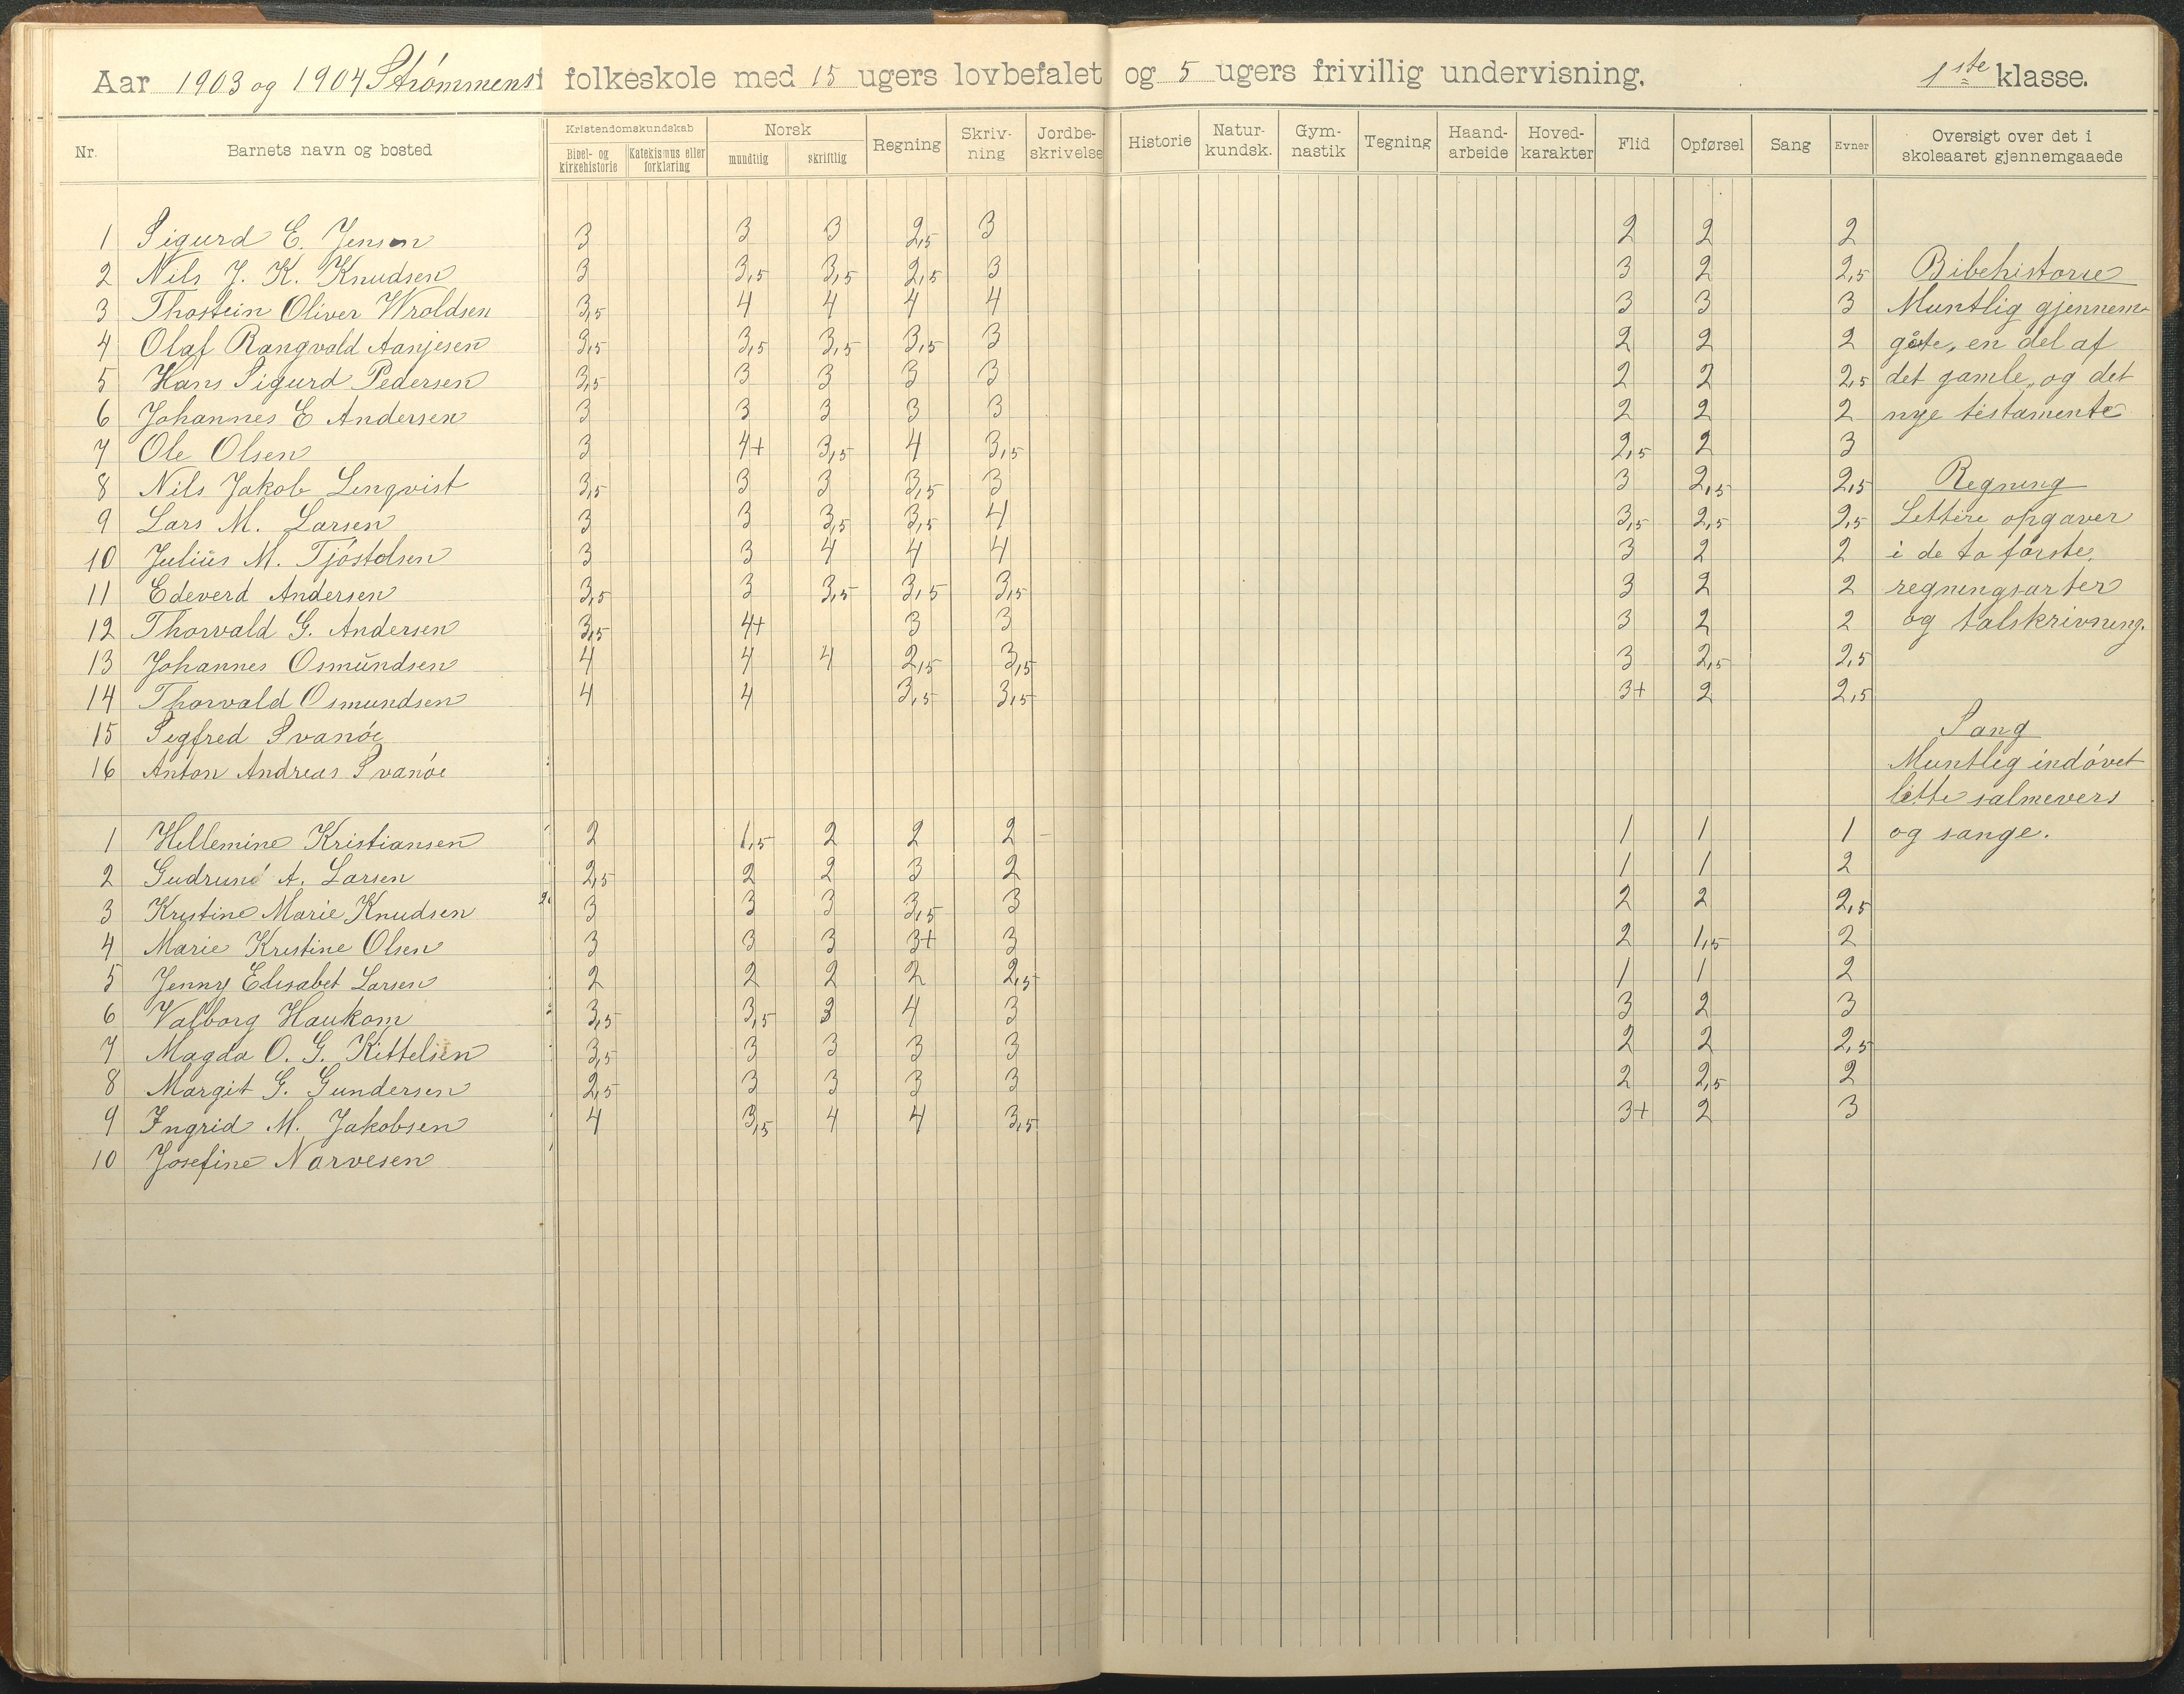 Aar 1903 og 1904 Strømmens i folkeskole med 15 ugers lovbefalet og 5 ugers frivillig undervisning. 1ste klasse.
Nr. Barnets navn og bosted Kristendomskundskab Bibel- og kirkehistorie Katekismus eller forklaring Norsk mundtlig skriftlig Regning Skriv-ning Jordbe-skrivelse Historie Natur-kundsk. Gym-nastik Tegning Haand-arbeide Hoved-karakter Flid Opførsel Sang Evner Oversigt over det i skoleaaret gjennemgaaede
1 Sigurd E. Jensen 3 3 3 2,5 3 2 2 2
2 Nils J. K. Knudsen 3 3,5 3,5 2,5 3 3 2 2,5 Bibelhistorie
3 Thostein Oliver Wroldsen 3,5 4 4 4 4 3 3 3 Muntlig gjennem-
4 Olaf Rangvald Aanjesen 3,5 3,5 3,5 3,5 3 2 2 2 gåte, en del af
5 Hans Sigurd Pedersen 3,5 3 3 3 3 2 2 2,5 det gamle, og det
6 Johannes E Andersen 3 3 3 3 3 2 2 2 nye testamente
7 Ole Olsen 3 4+ 3,5 4 3,5 2,5 2 3
8 Nils Jakob Lenqvist 3,5 3 3 3,5 3 3 2,5 2,5 Regning
9 Lars M. Larsen 3 3 3,5 3,5 4 3,5 2,5 2,5 Lettere opgaver
10 Julius M. Tjöstolsen 3 3 4 4 4 3 2 2 i de to første
11 Edeverd Andersen 3,5 3 3,5 3,5 3,5 3 2 2 regningsarter
12 Thorvald G. Andersen 3,5 4+ 3 3 3 2 2 og talskrivning.
13 Johannes Osmundsen 4 4 4 2,5 3,5 3 2,5 2,5
14 Thorvald Osmundsen 4 4 3,5 3,5 3+ 2 2,5
15 Segfred Svanöe Sang
16 Anton Andreas Svanöe Muntlig indövet
lette salmevers
1 Hellemine Kristiansen 2 1,5 2 2 2 1 1 1 og sange.
2 Gudrun A. Larsen 2,5 2 2 3 2 1 1 2
3 Kristine Marie Knudsen 3 3 3 3,5 3 2 2 2,5
4 Marie Kristine Olsen 3 3 3 3+ 3 2 1,5 2
5 Jenny Elisabet Larsen 2 2 2 2 2,5 1 1 2
6 Valborg Haukom 3,5 3,5 3 4 3 3 2 3
7 Magda O. G. Kittelsen 3,5 3 3 3 3 2 2 2,5
8 Margit G. Gundersen 2,5 3 3 3 3 2 2,5 2
9 Ingrid M. Jakobsen 4 3,5 4 4 3,5 3+ 2 3
10 Josefine Narvesen